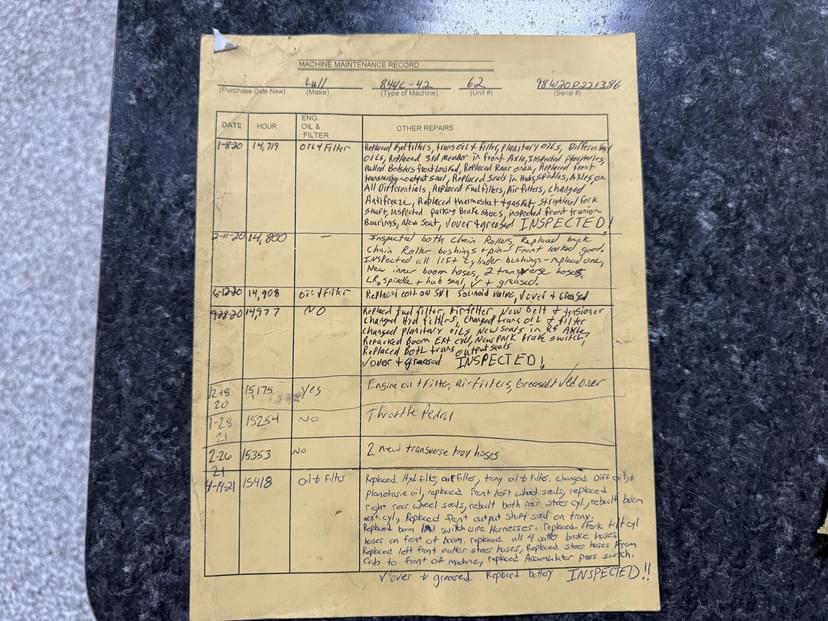 MACHINE MAINTENANCE RECORD
Lull 844C-42 62 98W20P221386
(Purchase Date New) (Make) (Type of Machine) (Unit #) (Serial #)
DATE HOUR ENG. OIL & FILTER OTHER REPAIRS
1-8-20 14,719 Oil & Filter Replaced Hyd filters, trans oil & filter, planitary oils, Differential
oils, Replaced 3rd member in front Axle, Inspected planitaries,
Pulled Bolsters front Looked, Replaced Rear ones, Replaced front
output seal, Replaced Seals in Hubs, spindles, Axles, on
All Differentials, Replaced Fuel filters, Air filters, changed
Antifreeze, Replaced thermostat & gasket, straightend fork
shaft, Inspected parking Brake shoes, inspected front trunion
Bearings, New Seat, ✓over & greased INSPECTED!
2-11-20 14,800 — Inspected both Chain Rollers, Replaced back
Chain Roller bushings & pin - Front looked good.
INspected all lift cylinder bushings - replaced one,
New inner boom hoses, 2 transverse hoses,
LR spindle & hub seal, ✓ & greased.
6-12-20 14,908 oil & Filter Replaced coil on SV1 Solinoid valve, ✓over & Greased
9-28-20 14977 NO Replaced fuel filter, Airfilter, New Belt & tensioner
Changed Hyd filters, changed trans oil & filter
Changed planitary oils, New seals in RF Axle,
Repacked boom Ext cyl, New park brake switch,
Replaced both trans output seals
✓over & greased INSPECTED!
12-18 20 15,175 yes Engine oil & Filter, air filters, Greased & ✓ed over
1-28 21 15254 NO Throttle Pedal
2-26 21 15353 NO 2 new transverse tray hoses
4-19-21 15418 Oil & Filter Replaced Hyd filter, air filter, trany oil & filter. changed Diff oil, &
planetarie oil, replaced front left wheel seals, replaced
right rear wheel seals, rebuilt both rear steer cyl, rebuilt boom
ext. cyl, Replaced front output shaft seal on trany.
Replaced boom switch wire Harnesses. replaced fork tilt cyl
hoses on front of boom, replaced all 4 outter brake hoses
Replaced left front outter steer hoses, Replaced steer hoses From
Cab to front of machine, replaced Accumulator press switch.
✓over & greased Replaced battery INSPECTED!!